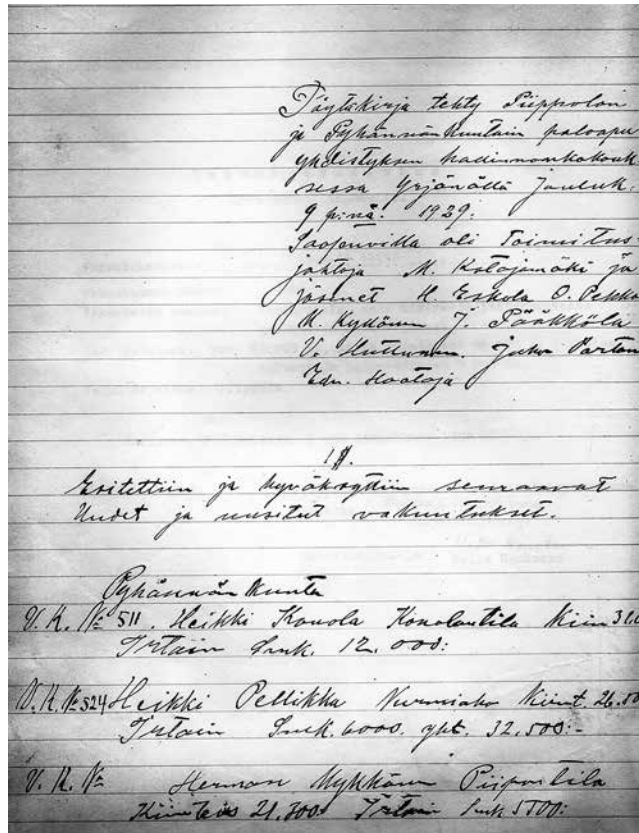 Pöytäkirja tehty Piippolan
ja Pyhännän kuntain paloapu
yhdistyksen hallinnonkokouk
sessa Yrjänällä Jouluk.
9 p:nä. 1929:
Saapuvilla oli Toimitus
johtaja M. ja
jäsenet H. Eskola O. Pekka
M. Kykkänen J. Pääkkölä
V. Huttunen. Juho Parton
Edv. Haataja
1 §.
Esitettiin ja hyväksyttiin seuraavat
Uudet ja uusitut vakuutukset.
Pyhännän Kunta
V. K. № 511. Heikki Konola Konolantila Kiin
Irtain Smk. 12.000:
V. K. № 524 Heikki Pellikka Nurmiaho Kiint. 26.
Irtain Smk. 6000. yht. 32.500:-
V. K. № Herman Mykkänen Piiportila
Kiinteis 21.300 Irtain Smk 5500: